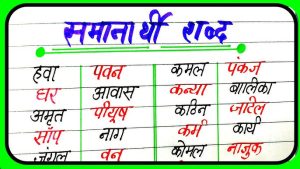 समानार्थी शब्द
हवा पवन कमल पंकज
घर आवास कन्या बालिका
अमृत पीयूष कठिन जटिल
साँप नाग कर्म कार्य
जंगल वन कोमल नाजुक